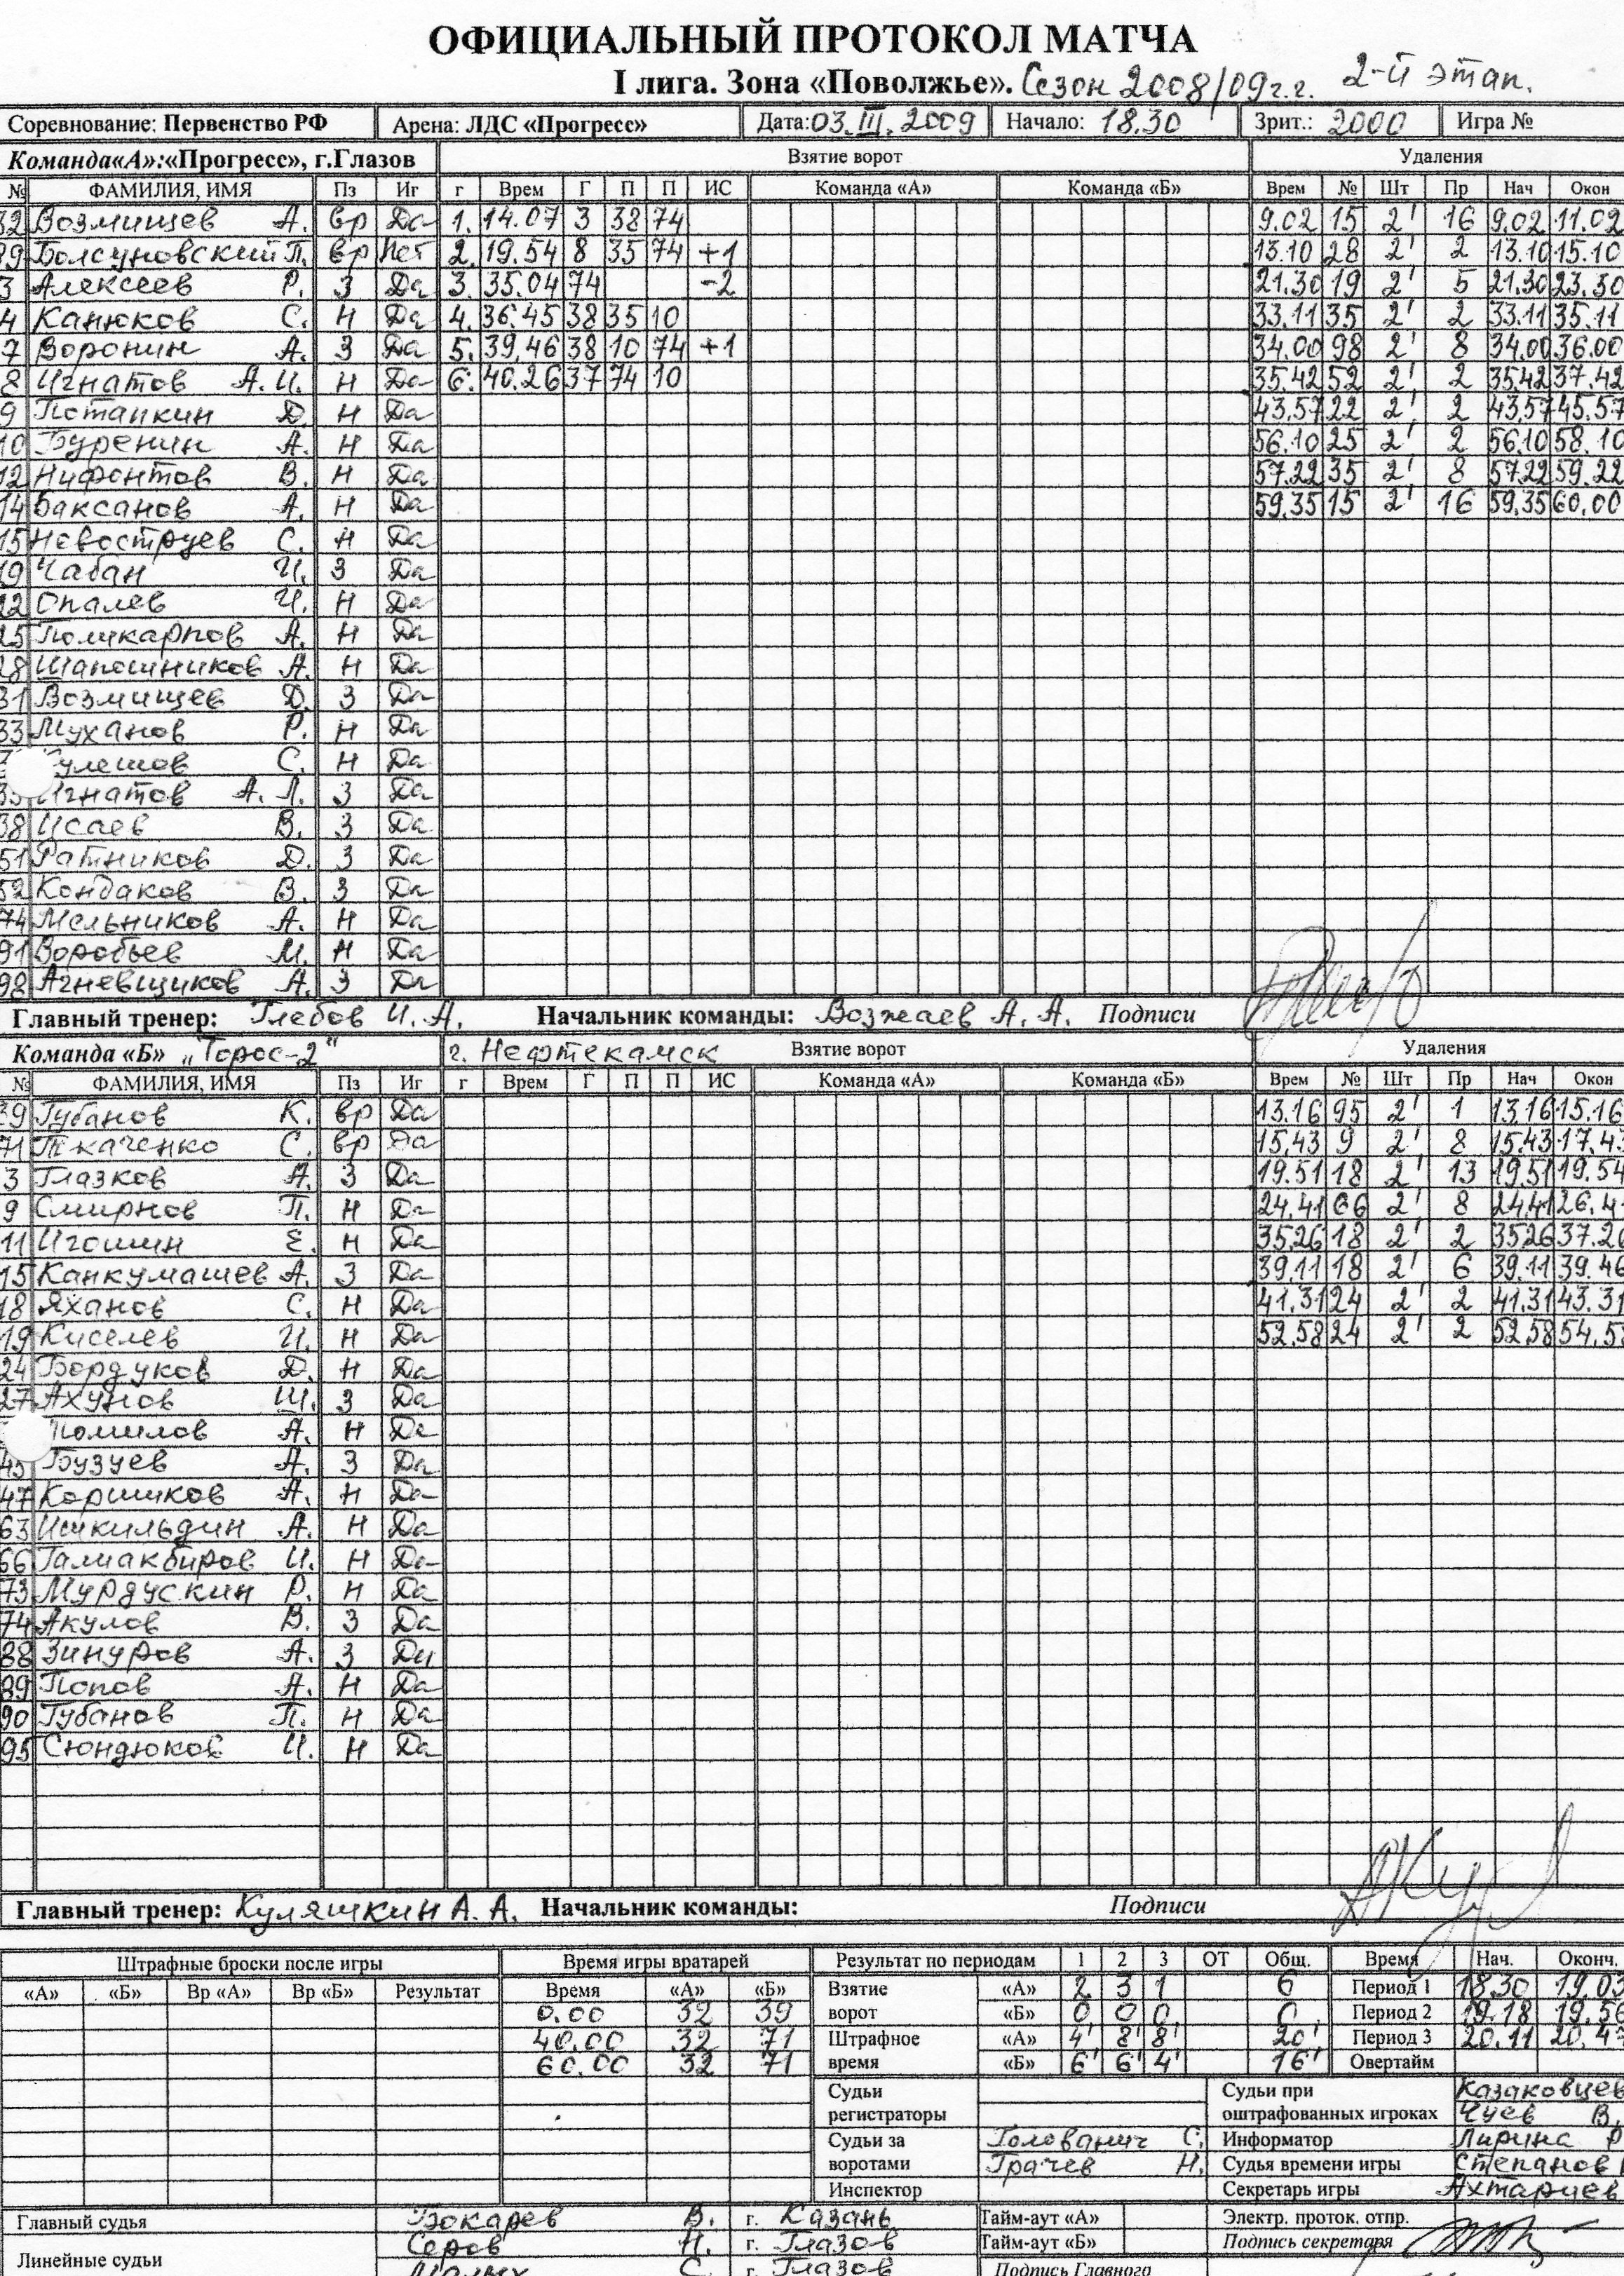 ОФИЦИАЛЬНЫЙ ПРОТОКОЛ МАТЧА
I лига. Зона «Поволжье». Сезон 2008/09 г.г. 2-й этап.
Соревнование: Первенство РФ Арена: ЛДС «Прогресс» Дата: 03.III.2009 Начало: 18.30 Зрит.: 2000 Игра №
Команда«А»:«Прогресс», г.Глазов Взятие ворот Удаления
№ ФАМИЛИЯ, ИМЯ Пз Иг г Врем Г П П ИС Команда «А» Команда «Б» Врем № Шт Пр Нач Окон
32 Возмищев А. вр Да 1. 14.07 3 38 74 9.02 15 2' 16 9.02 11.02
39 Болсуновский П. вр Нет 2. 19.54 8 35 74 +1 13.10 28 2' 2 13.10 15.10
3 Алексеев Р. З Да 3. 35.04 74 -2 21.30 19 2' 5 21.30 23.30
4 Канюков С. Н Да 4. 36.45 38 35 10 33.11 35 2' 2 33.11 35.11
7 Воронин А. З Да 5. 39.46 38 10 74 +1 34.00 98 2' 8 34.00 36.00
8 Игнатов А.И. Н Да 6. 40.26 37 74 10 35.42 52 2' 2 35.42 37.42
9 Потапкин Д. Н Да 43.57 22 2' 2 43.57 45.57
10 Буренин А. Н Да 56.10 25 2' 2 56.10 58.10
12 Нифонтов В. Н Да 57.22 35 2' 8 57.22 59.22
14 Баксанов А. Н Да 59.35 15 2' 16 59.35 60.00
15 Новоструев С. Н Да
19 Чабан И. З Да
22 Опалев И. Н Да
25 Поликарпов А. Н Да
28 Шапошников А. Н Да
31 Возмищев Д. З Да
33 Муханов Р. Н Да
улешов С. Н Да
35 Игнатов А. Л. З Да
38 Исаев В. З Да
51 Ратников Д. З Да
52 Кондаков В. З Да
74 Мельников А. Н Да
91 Воробьев М. Н Да
98 Агневщиков А. З Да
Главный тренер: Глебов И. А. Начальник команды: Возжаев А. А. Подписи
Команда «Б» „Торос-2" г. Нефтекамск Взятие ворот Удаления
№ ФАМИЛИЯ, ИМЯ Пз Иг г Врем Г П П ИС Команда «А» Команда «Б» Врем № Шт Пр Нач Окон
39 Губанов К. вр Да 13.16 95 2' 1 13.16 15.16
71 Ткаченко С. вр Да 15.43 9 2' 8 15.43 17.43
3 Глазков А. З Да 19.51 18 2' 13 19.51 19.54
9 Смирнов П. Н Да 24.41 66 2' 8 24.41 26.4
11 Игошин Е. Н Да 35.26 18 2' 2 35.26 37.26
15 Канкумашев А. З Да 39.11 18 2' 6 39.11 39.46
18 Яханов С. Н Да 41.31 24 2' 2 41.31 43.31
19 Киселев И. Н Да 52.58 24 2' 2 52.58 54.5
24 Бордуков Д. Н Да
27 Ахунов Ш. З Да
Томилов А. Н Да
45 Бузуев А. З Да
47 Коршиков А. Н Да
63 Ишкильдин А. Н Да
66 Галиакбиров И. Н Да
73 Мурдускин Р. Н Да
74 Акулов В. З Да
88 Зинуров А. З Да
89 Попов А. Н Да
90 Губанов П. Н Да
95 Сюндюков И. Н Да
Главный тренер: Куляшкин А. А. Начальник команды: Подписи
Штрафные броски после игры Время игры вратарей Результат по периодам 1 2 3 ОТ Общ. Время Нач. Оконч.
«А» «Б» Вр «А» Вр «Б» Результат Время «А» «Б» Взятие «А» 2 3 1 6 Период 1 18.30 19.03
0.00 32 39 ворот «Б» 0 0 0 0 Период 2 19.18 19.56
40.00 32 71 Штрафное «А» 4' 8' 8' 20' Период 3 20.11 20.4
60.00 32 71 время «Б» 6' 6' 4' 16' Овертайм
Судьи Судьи при Казаковцев
регистраторы оштрафованных игроках Чуев В.
Судьи за Голованич С. Информатор Лирина Р
воротами Грачев Н. Судья времени игры Степанов
Инспектор Секретарь игры Ахтариев
Главный судья Бокарев В. г. Казань Тайм-аут «А» Электр. проток. отпр.
Серов Н. г. Глазов Тайм-аут «Б» Подпись секретаря
Линейные судьи С. г. Глазов Подпись Главного